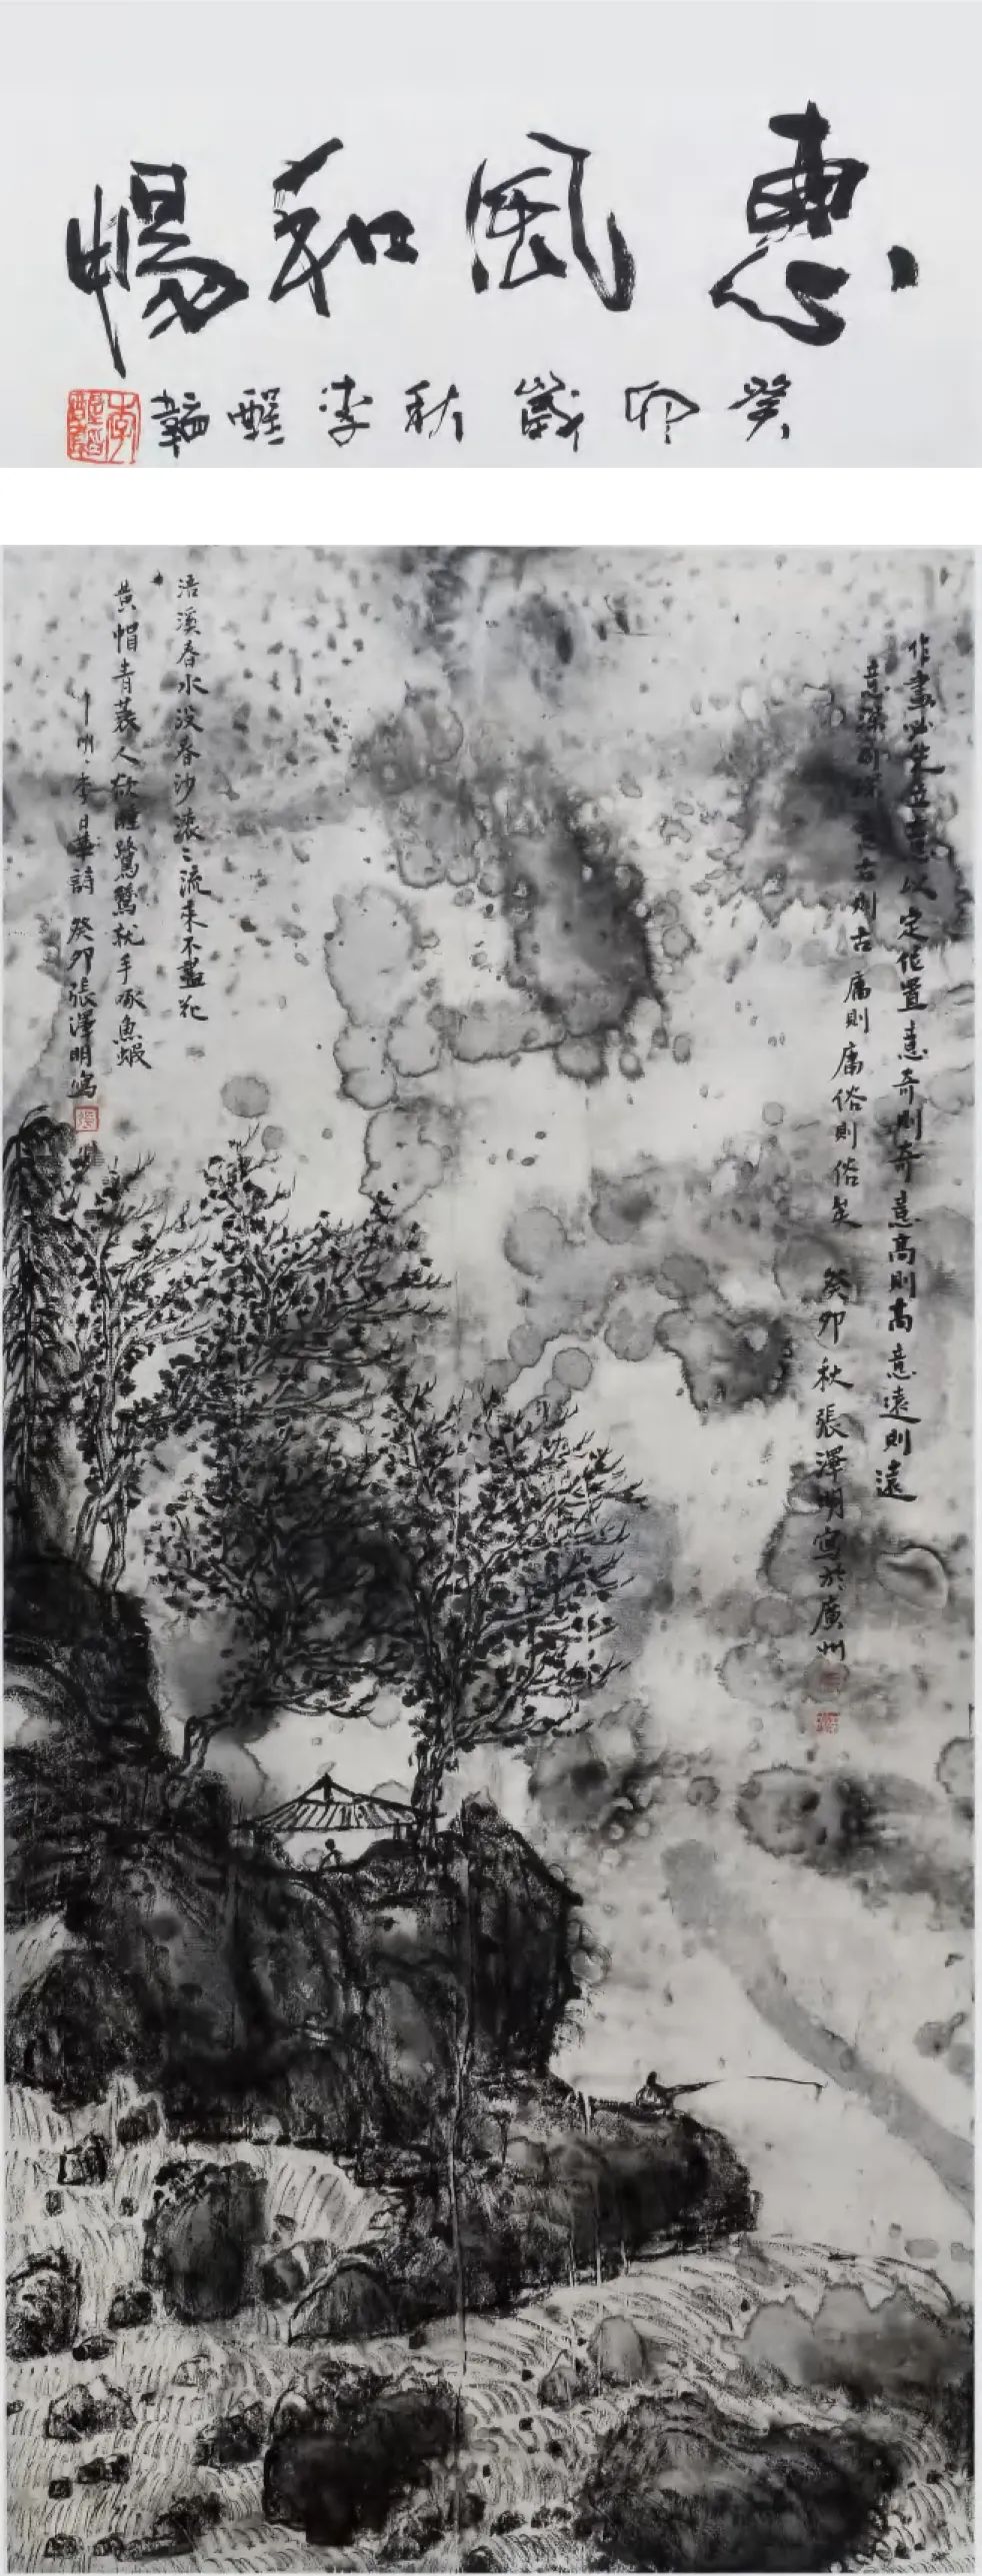 惠風和暢
癸卯歲秋李醒韜
李醒韜
作畫必先立意以定位置意奇則奇意高則高意遠則遠
意深則深意古則古庸則庸俗則俗矣 癸卯秋張澤明寫於廣州
浯溪春水没春沙滚〻流来不盡花
黄帽青蓑人欲睡鷺鷥就手啄魚蝦
明·李日華詩 癸卯張澤明寫